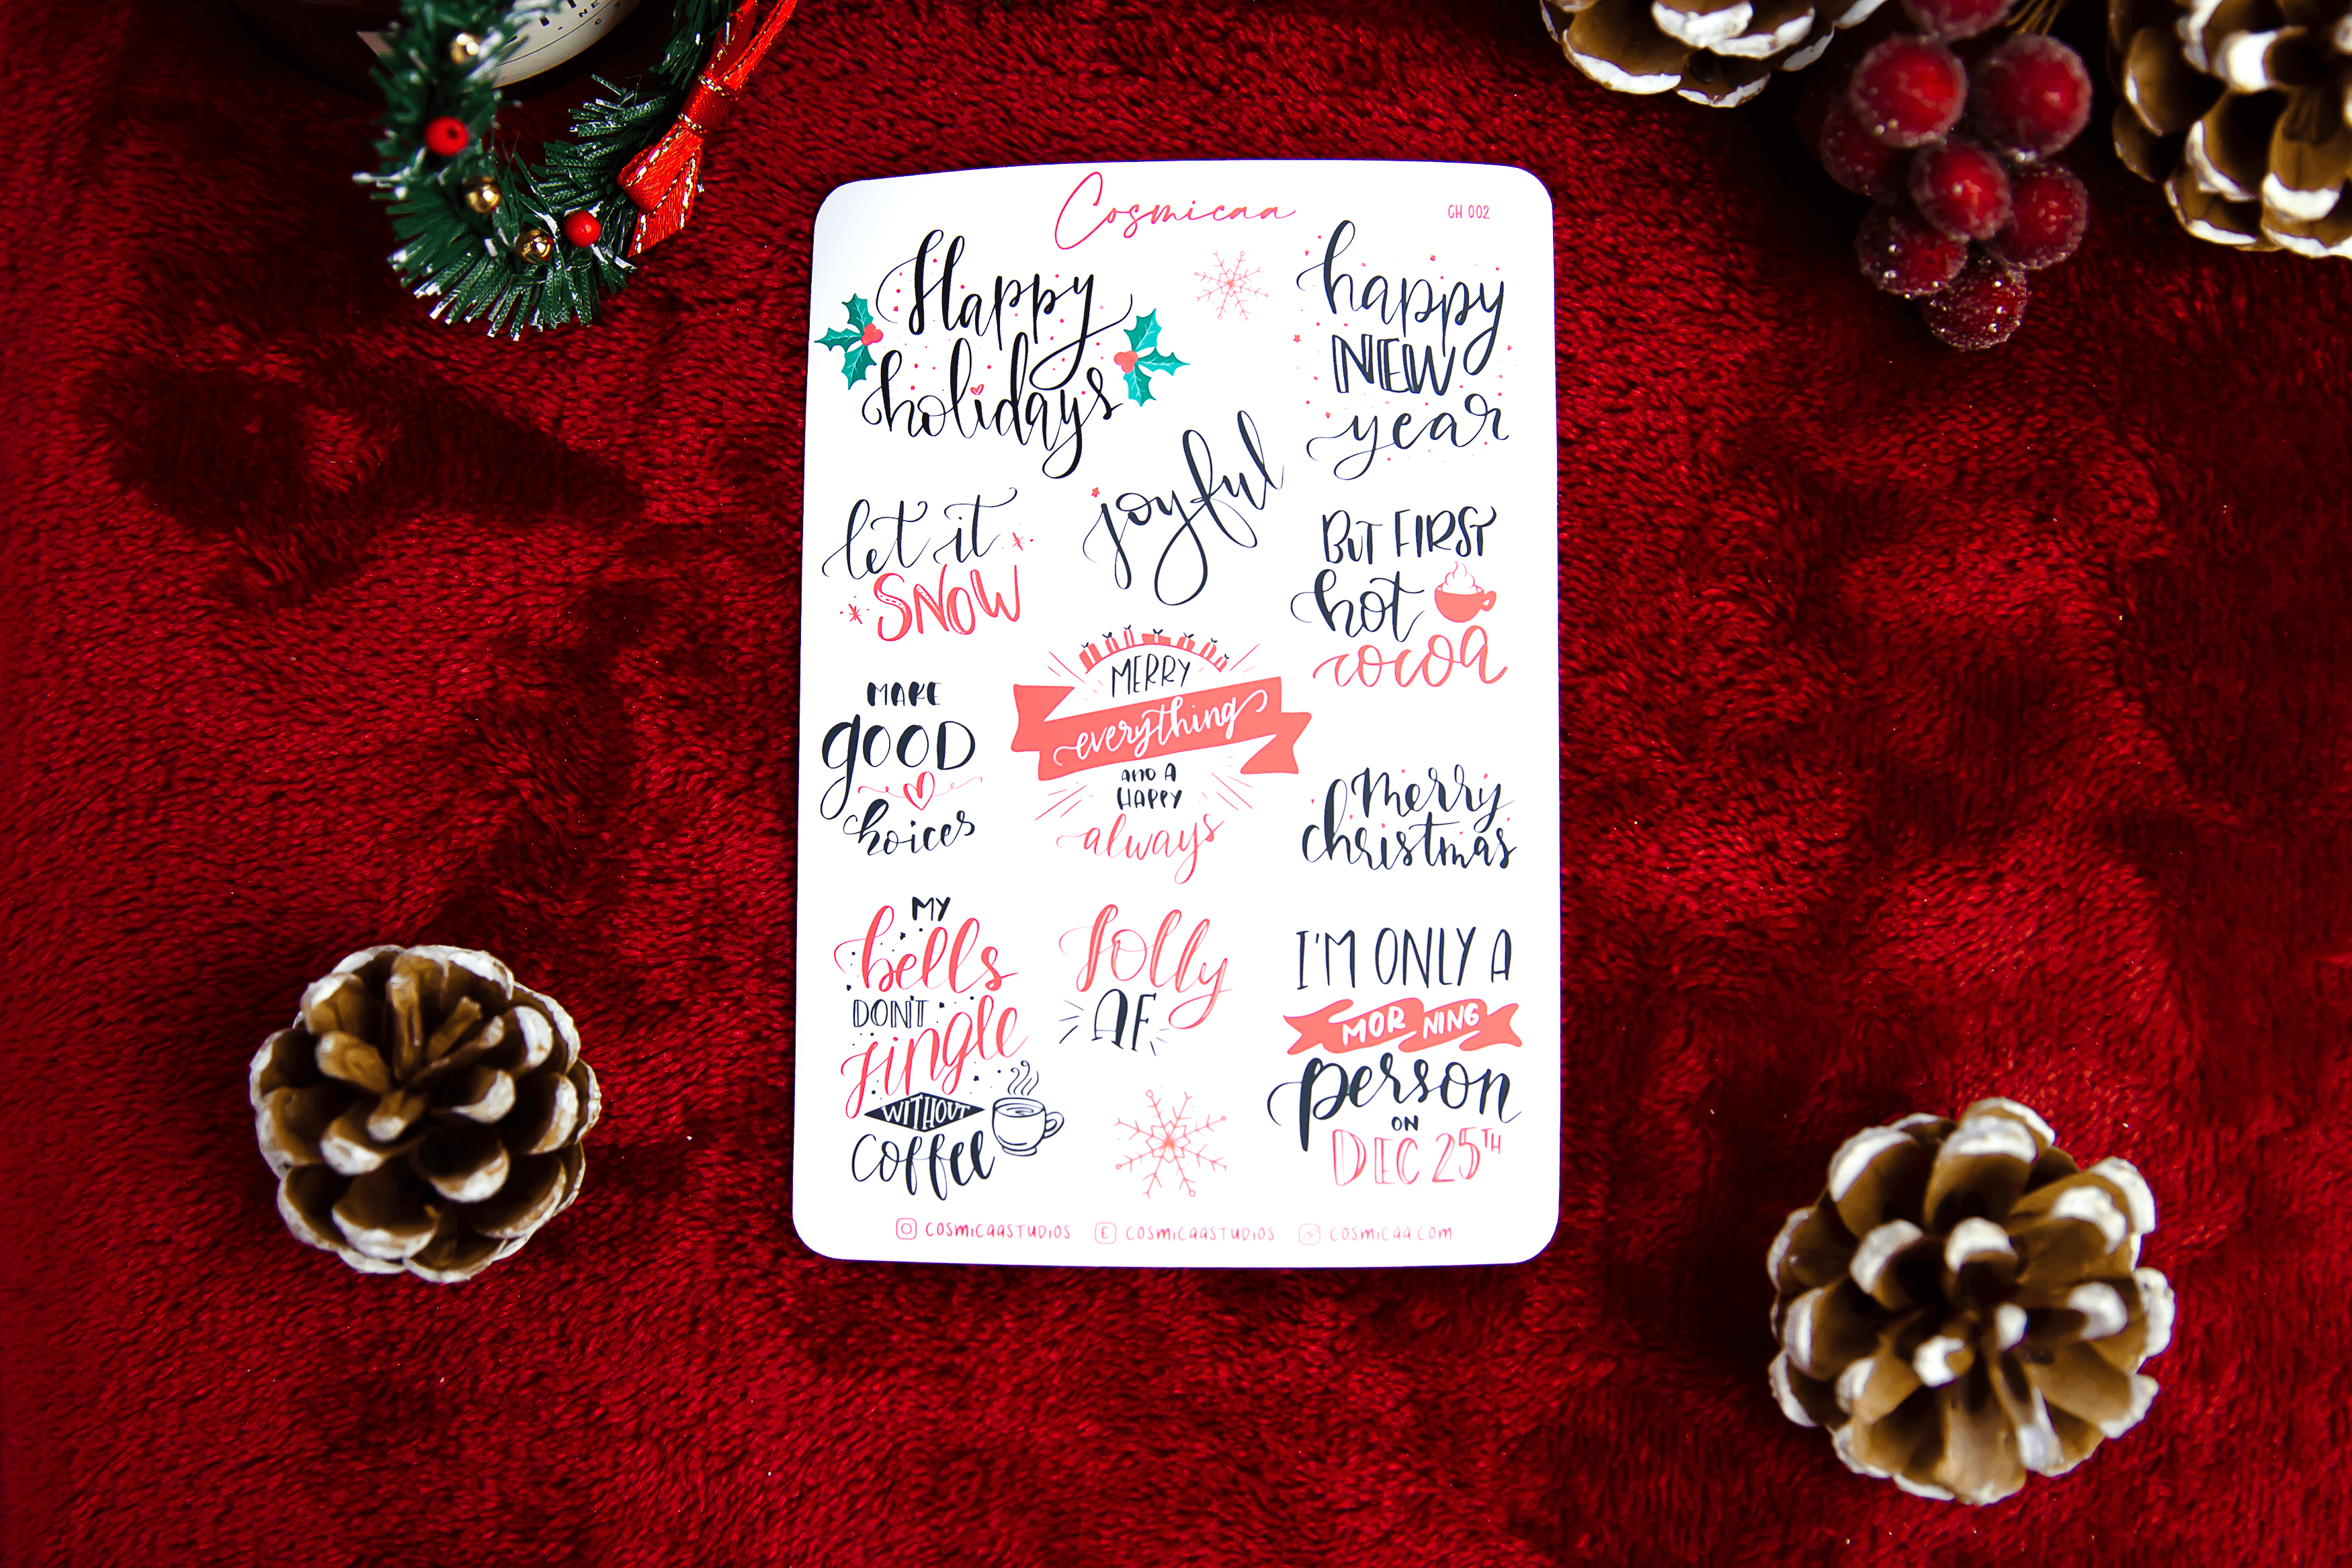 Cosmicaa
CH 002
Happy
holidays
happy
NEW
year
let it
SNOW
joyful
BUT FIRST
hot
cocoa
MAKE
gOOD
choices
MERRY
everything
AND A
HAPPY
always
merry
christmas
MY
bells
DON'T
jingle
WITHOUT
coffee
Jolly
AF
I'M ONLY A
MORNING
person
ON
DEC 25TH
COSMICAASTUDIOS
E COSMICAASTUDIOS
COSMICAA.COM